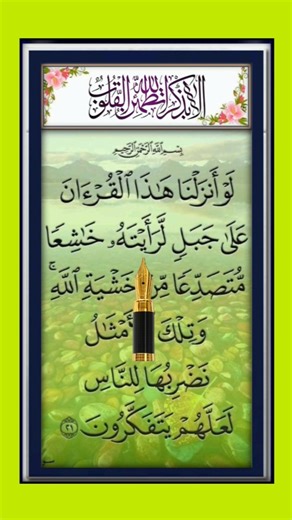 ألا بذكر الله تطمئن القلوب
بسم الله الرحمن الرحيم
لَوْ أَنزَلْنَا هَٰذَا ٱلْقُرْءَانَ
عَلَىٰ جَبَلٍ لَّرَأَيْتَهُۥ خَٰشِعًا
مُّتَصَدِّعًا مِّنْ خَشْيَةِ ٱللَّهِ ۚ
وَتِلْكَ ٱلْأَمْثَٰلُ
نَضْرِبُهَا لِلنَّاسِ
لَعَلَّهُمْ يَتَفَكَّرُونَ ٢١